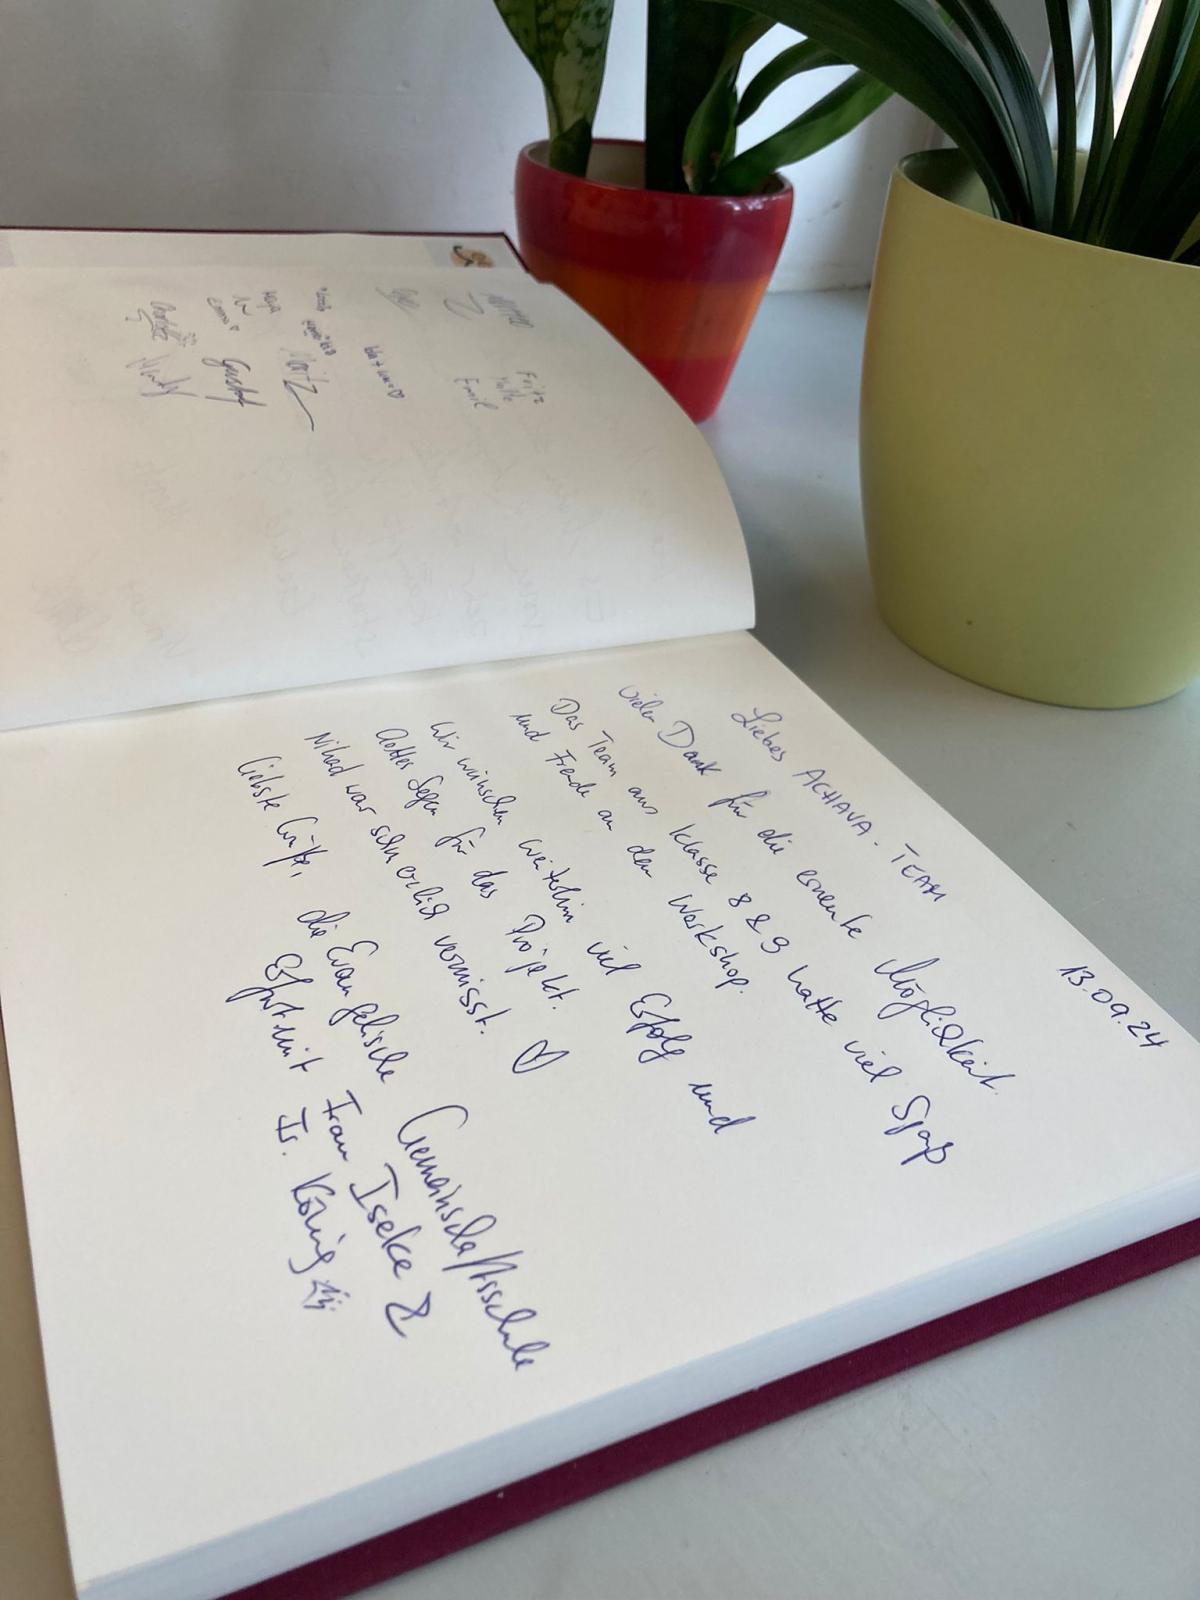 13.09.24
Liebes ACHAVA-TEAM
vielen Dank für die erneute Möglichkeit.
Das Team aus Klasse 8 & 9 hatte viel Spaß
und Freude an dem Workshop.
Wir wünschen weiterhin viel Erfolg und
Gottes Segen für das Projekt.
Nihad war sehr vermisst. ♡
Liebste Grüße, die Evangelische Gemeinschaftsschule
Erfurt mit Frau Iseke &
Fr. König
Fritz
Emil
Moritz
Gustaf
Maja
Emma